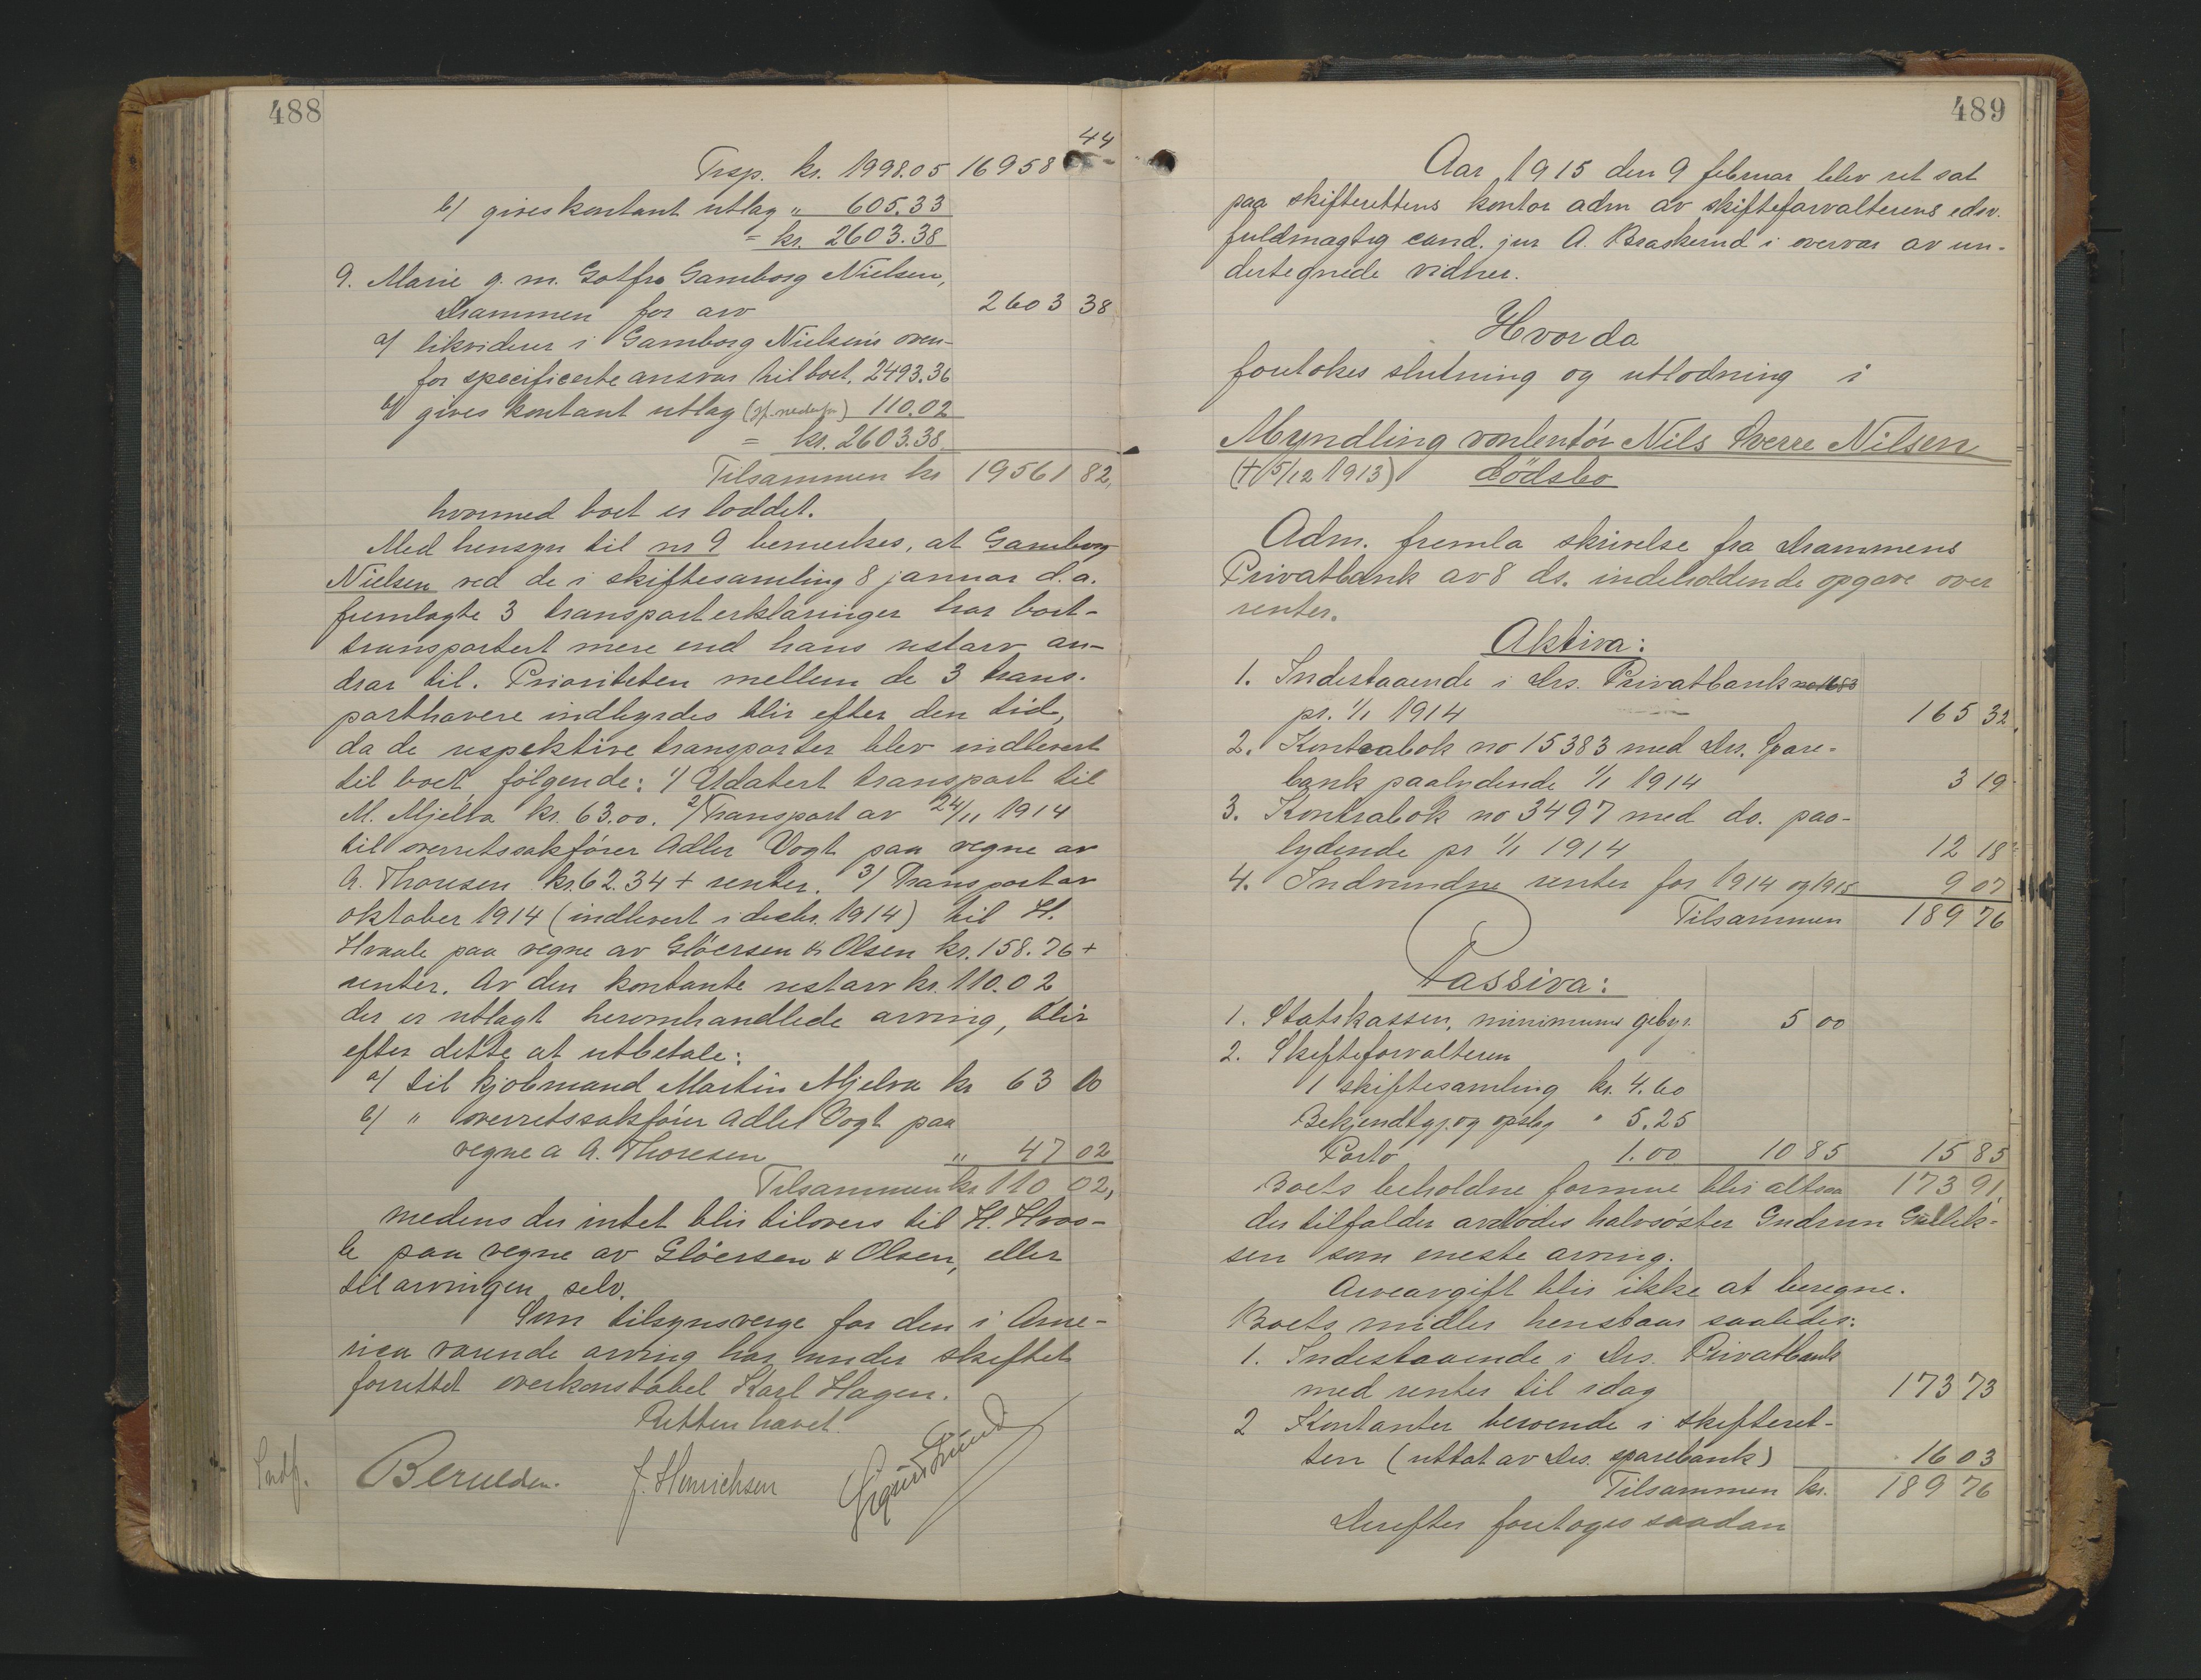 488
Trsp. kr. 1998.05 16958 44
b) gives kontant utlæg " 605.33
= kr. 2603.38
9. Marie g. m. Gotfr. Gamborg Nielsen,
Drammen for arv 2603 38
a) likviderer i Gamborg Nielsens oven-
for specificerte ansvar til boet, 2493.36
b) gives kontant utlæg (jf. nedenfor) 110.02
= kr. 2603.38
Tilsammen kr 19561 82,
hvormed boet er loddet.
Med hensyn til nr 9 bemerkes, at Gamborg
Nielsen ved de i skiftesamling 8 januar d.a.
fremlagte 3 transporterklæringer har bort-
transportert mere end hans restarv an-
drar til. Prioriteten mellem de 3 trans-
porthavere indbyrdes blir efter den tid,
da de respektive transporter blev indlevert
til boet, følgende: 1) Udatert transport til
M. Mjelva kr. 63.00. 2) Transport av 24/11 1914
til overretssakfører Adler Vogt paa vegne av
A. Thoresen kr. 62.34 + renter. 3) Transport av
oktober 1914 (indlevert i decbr. 1914) til H.
Hvaale paa vegne av Glöersen & Olsen kr. 158.76 +
renter. Av den kontante restarv kr. 110.02
der er utlagt heromhandlede arving, blir
efter dette at utbetale:
a) til kjøbmand Martin Mjelva kr 63 00
b) " overretssakfører Adler Vogt paa
vegne a A. Thoresen " 47 02
Tilsammen kr. 110 02,
medens der intet blir tilovers til H. Hvaa-
le paa vegne av Glöersen & Olsen, eller
til arvingen selv.
Som tilsynsverge for den i Ame-
rica værende arving har under skiftet
forrettet overkonstabel Karl Hagen.
Retten hævet.
Indf. J. Henrichsen Sigurd Lund
489
Aar 1915 den 9 februar blev ret sat
paa skifterettens kontor adm av skifteforvalterens edsv.
fuldmægtig cand. jur A. Braskerud i overvær av un-
dertegnede vidner.
Hvorda
foretokes slutning og utlodning i
Myndling volontør Nils Sverre Nilsen
(+ 15/12 1913) dödsbo
Adm. fremla skrivelse fra Drammens
Privatbank av 8 ds. indeholdende opgave over
renter.
Aktiva:
1. Indestaaende i Drs. Privatbank
pr. 1/1 1914 165 32,
2. Kontrabok no 15383 med Drs. Spare-
bank paalydende 1/1 1914 3 19
3. Kontrabok no 3497 med do. paa-
lydende pr 1/1 1914 12 18
4. Indvundne renter for 1914 og 1915 9 07
Tilsammen 189 76
Passiva:
1. Statskassen, minimums gebyr. 5 00
2. Skifteforvalteren
1 skiftesamling kr. 4.60
Bekjendtgj. og opslag " 5.25
Porto 1.00 10 85 15 85
Boets beholdne formue blir altsaa 173 91,
der tilfalder avdødes halvsøster Gudrun Gullik-
sen som eneste arving.
Arveavgift blir ikke at beregne.
Boets midler henstaar saaledes:
1. Indestaaende i Drs. Privatbank
med renter til idag 173 73
2 Kontanter beroende i skifteret-
ten (uttat av Drs. sparebank) 16 03
Tilsammen kr. 189 76
Derefter foretoges saadan